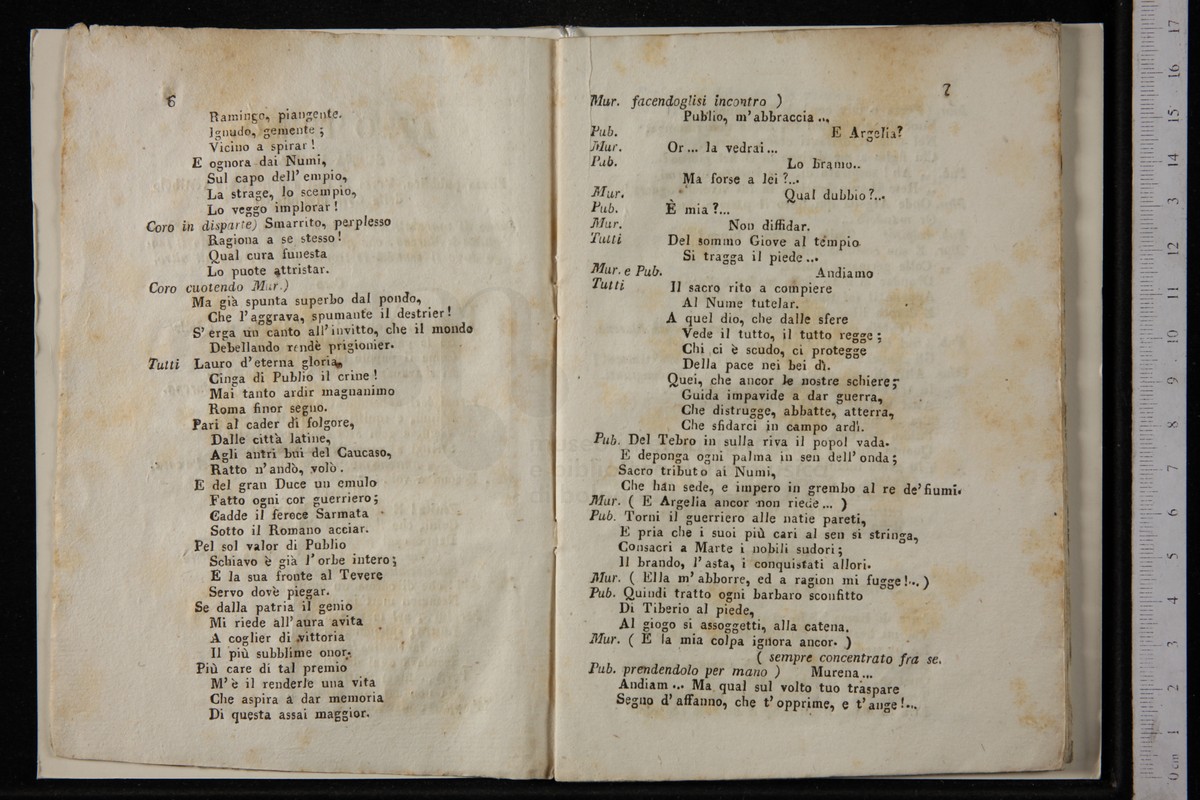 6
Ramingo, piangente.
Ignudo, gemente ;
Vicino a spirar !
E ognora dai Numi,
Sul capo dell' empio,
La strage, lo scempio,
Lo veggo implorar !
Coro in disparte) Smarrito, perplesso
Ragiona a se stesso !
Qual cura funesta
Lo puote attristar.
Coro cuotendo Mur.)
Ma già spunta superbo dal pondo,
Che l'aggrava, spumante il destrier !
S' erga un canto all' invitto, che il mondo
Debellando rendè prigionier.
Tutti Lauro d'eterna gloria
Cinga di Publio il crine !
Mai tanto ardir magnanimo
Roma finor segno.
Pari al cader di folgore,
Dalle città latine,
Agli antri bui del Caucaso,
Ratto n'andò, volò.
E del gran Duce un emulo
Fatto ogni cor guerriero ;
Cadde il ferece Sarmata
Sotto il Romano acciar.
Pel sol valor di Publio
Schiavo è già l'orbe intero ;
E la sua fronte al Tevere
Servo dovè piegar.
Se dalla patria il genio
Mi riede all'aura avita
A coglier di vittoria
Il più subblime onor.
Più care di tal premio
M'è il renderle una vita
Che aspira a dar memoria
Di questa assai maggior.
7
Mur. facendoglisi incontro )
Publio, m'abbraccia ..,
Pub. E Argelia?
Mur. Or... la vedrai...
Pub. Lo bramo..
Ma forse a lei ?...
Mur. Qual dubbio ?...
Pub. È mia ?...
Mur. Non diffidar.
Tutti Del sommo Giove al tempio
Si tragga il piede ...
Mur. e Pub. Andiamo
Tutti Il sacro rito a compiere
Al Nume tutelar.
A quel dio, che dalle sfere
Vede il tutto, il tutto regge ;
Chi ci è scudo, ci protegge
Della pace nei bei dì.
Quei, che ancor le nostre schiere ;
Guida impavide a dar guerra,
Che distrugge, abbatte, atterra,
Che sfidarci in campo ardì.
Pub. Del Tebro in sulla riva il popol vada.
E deponga ogni palma in sen dell' onda ;
Sacro tributo ai Numi,
Che han sede, e impero in grembo al re de' fiumi.
Mur. ( E Argelia ancor non riede ... )
Pub. Torni il guerriero alle natie pareti,
E pria che i suoi più cari al sen si stringa,
Consacri a Marte i nobili sudori ;
Il brando, l'asta, i conquistati allori.
Mur. ( Ella m'abborre, ed a ragion mi fugge !... )
Pub. Quindi tratto ogni barbaro sconfitto
Di Tiberio al piede,
Al giogo si assoggetti, alla catena.
Mur. ( E la mia colpa ignora ancor. )
( sempre concentrato fra se.
Pub. prendendolo per mano ) Murena ...
Andiam ... Ma qual sul volto tuo traspare
Segno d'affanno, che t'opprime, e t'ange !...
0 cm 1 2 3 4 5 6 7 8 9 10 11 12 13 14 15 16 17